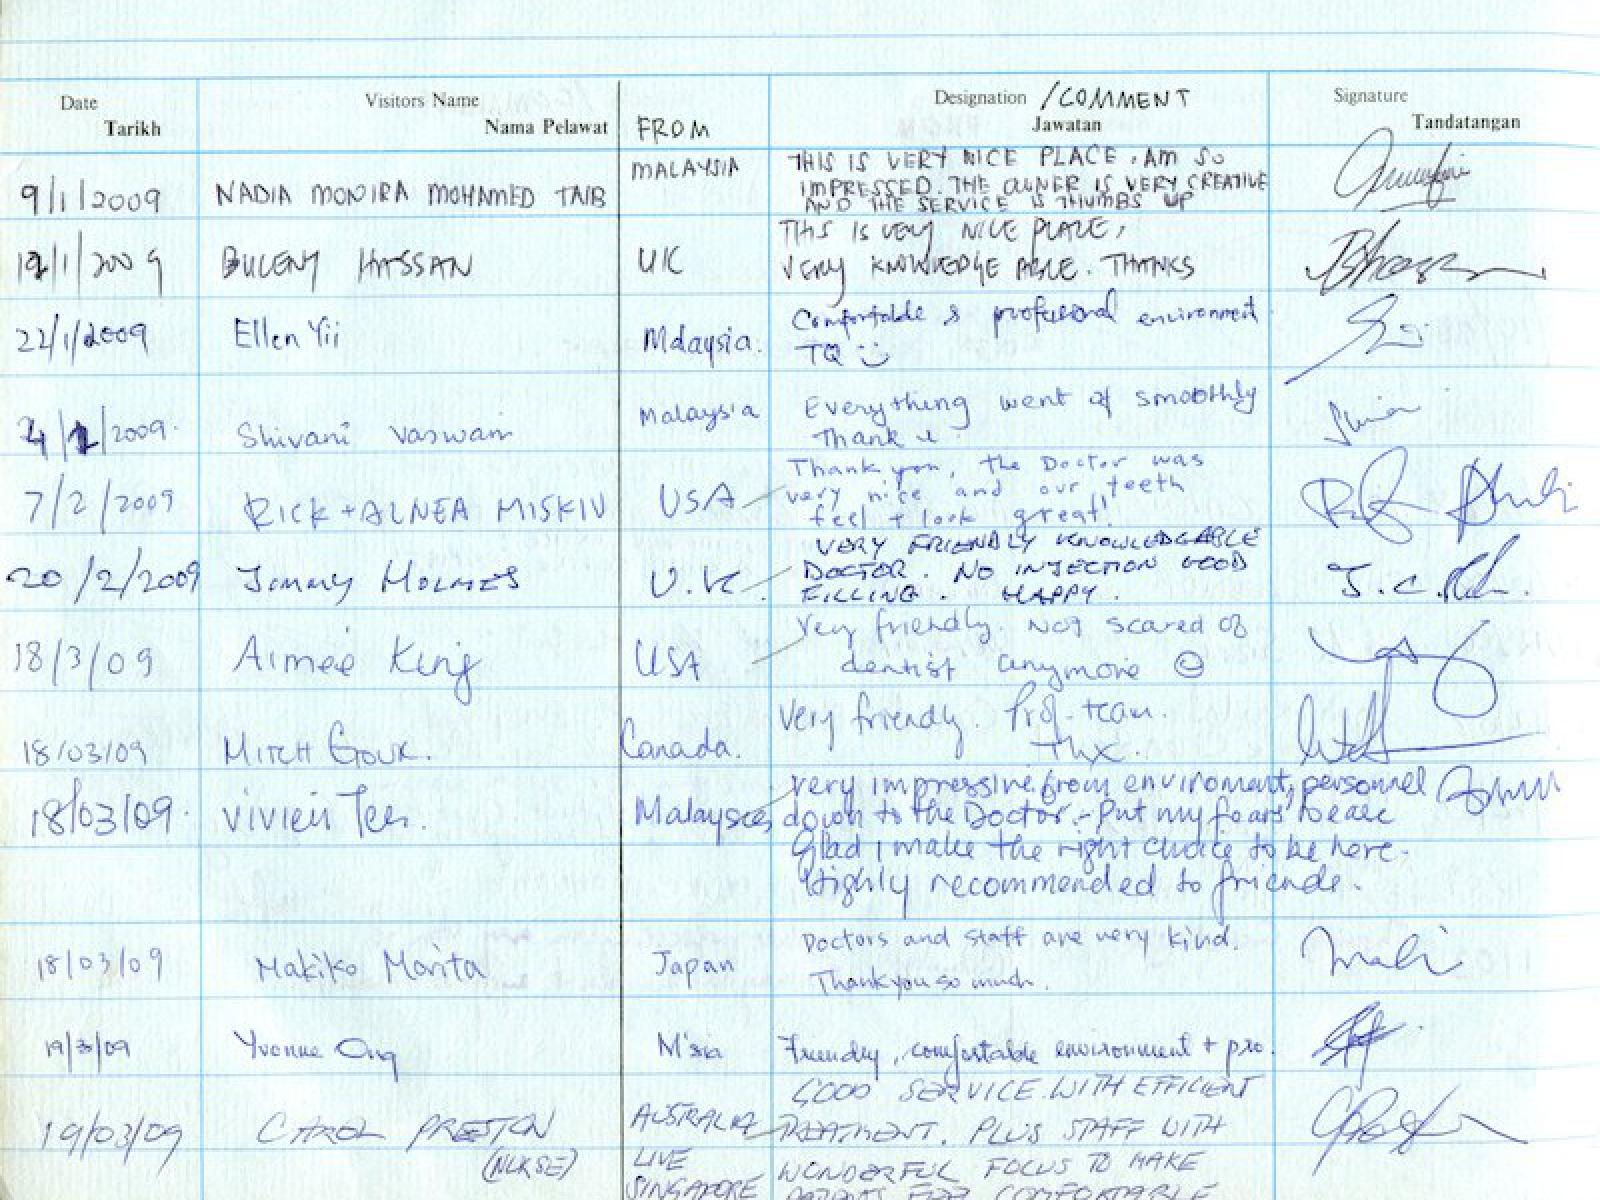 Date Visitors Name Designation /COMMENT Signature
Tarikh Nama Pelawat FROM Jawatan Tandatangan
9/1/2009 NADIA MONIRA MOHAMED TAIB MALAYSIA
THIS IS VERY NICE PLACE. AM SO
IMPRESSED. THE OWNER IS VERY CREATIVE
AND THE SERVICE IS THUMBS UP
12/1/2009 BULENT HASSAN UK
THIS IS VERY NICE PLACE,
VERY KNOWLEDGEABLE. THANKS
22/1/2009 Ellen Yii Malaysia.
Comfortable & professional environment
TQ
4/2/2009. Shivani Vaswani Malaysia
Everything went of smoothly
Thank u.
7/2/2009 RICK + ALNEA MISKIV USA
Thank you, the Doctor was
very nice and our teeth
feel + look great!
20/2/2009 Jimmy HOLMES U.K.
VERY FRIENDLY KNOWLEDGABLE
DOCTOR. NO INJECTION GOOD
FILLING. HAPPY.
18/3/09 Aimee King USA
Very friendly. Not scared of
dentist anymore ☺
18/03/09 MITCH GOUK. Canada.
Very friendly. Prof. team.
THX.
18/03/09. Vivien Tees. Malaysia
very impressive from enviroment, personnel
down to the Doctor. - Put my fears to ease
Glad I make the right choice to be here.
Highly recommended to friends.
18/03/09 Makiko Morita Japan
Doctors and staff are very kind.
Thank you so much.
19/3/09 Yvonne Ong M'sia
Friendly, comfortable environment + pro.
19/03/09 CAROL PRESTON AUSTRALIA
(NURSE) LIVE
SINGAPORE
GOOD SERVICE WITH EFFICIENT
TREATMENT. PLUS STAFF WITH
WONDERFUL FOCUS TO MAKE
PATIENTS FEEL COMFORTABLE